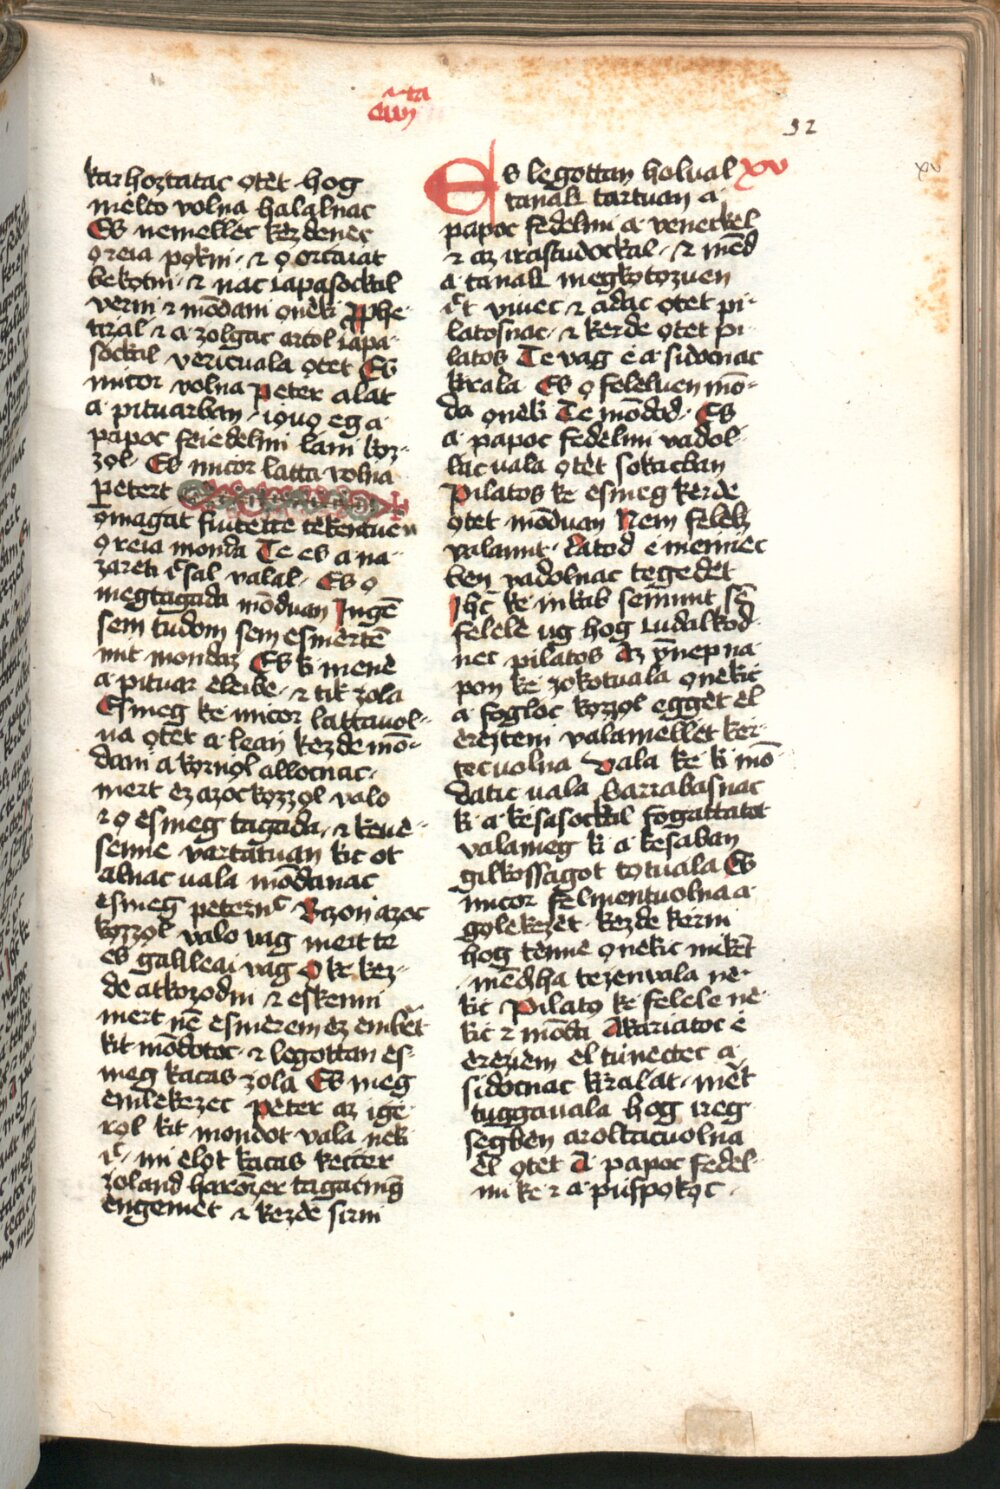 52
xv
karhoztatac ọtèt · hog
mèlto volna halalnac
Es nèmellèc kezdenèc
ọreia pọkni · ⁊ ọ orcaiat
bekọtni · ⁊ ṅac iapasockal
verni ⁊ mōdani ọnèki Pphe-
tizal · ⁊ a zolgac arcol iapa-
sockal vericuala ọtèt Es
micor volna Pèter alat
a pituarban · iọuọ eg a
papoc feiedelmi lani kọz-
zọl · Es micor latta volna
Pètert
ọmagat fiutette tèkentuen
ọreia monda Te es a na-
zareti iċsal valal · Es ọ
megtagada mōduan Ingē
sem tudom sem esmertē
mit mondaz Es ki mène
a pituar èleibe · ⁊ tik zola
Esmeg ke micor lattauol-
na ọtèt a leaṅ kezde mō-
dani a kọrṅọl allocnac ·
mert ez azoc kọzzọl valo
⁊ ọ èsmeg tagada · ⁊ keuè-
senne vartatuan kic ot
alnac uala mōdanac
esmeg pèterṅc Bizoṅ azoc
kọzzọl valo vag mert te
es galileai vag O ke kez-
de atkozodni ⁊ eskenni
mert nē esmerem ez embèrt
kit mōdotoc · ⁊ legottan es-
meg kacas zola Es meg
emlekezec Pèter az ige-
rọl kit mondot vala nèki
iċ · mi èlọt kacas kecter
zoland haromzer tagacmēg
èngemèt · ⁊ kezde sirni
Es legottan holual xv
tanalt tartuan a
papoc fedèlmi a venèckèl
⁊ az irastudockal · ⁊ mēd
a tanalt megkọtọzuen
iċt viuec ⁊ adac ọtet pi-
latosnac · ⁊ kerde ọtet pi-
latos Te vag è a sidocnac
kirala Es ọ feleluen mō-
da ọnèki Te mōdod · Es
a papoc fedèlmi vadol-
lac uala ọtèt sokacban
Pilatos ke èsmeg kerde
ọtet mōduan Nèm felelz
valamit · Latod è mèniec
ben vadolnac tegedèt
Ihċ ke inkab semmit sē
felele ug hog ċudalkod-
nec pilatos Az ȳnep na-
pon ke zokotuala ọnèkic
a fogloc kọzzọl eggèt èl
èrezteni valamellèt kèr-
tecuolna Vala ke ki mō
datic uala Barrabasnac
ki a kesasockal fogattatot
valameg ki a kesaban
gilkossagot tọtuala Es
micor felmentuolna a
gọlekezèt · kezde kerni
hog tènne ọnèkic mikēt
mēdha tezenvala nè-
kic Pilatọ ke felele nè-
kic ⁊ mōda Akariatoc è
èrezièm el tunèctec a
sidocnac kiralat · mèrt
tuggauala hog ireg
segbèn aroltacuolna
èl ọtet A papoc fedèl-
mi ke ⁊ a pispọkọc ·